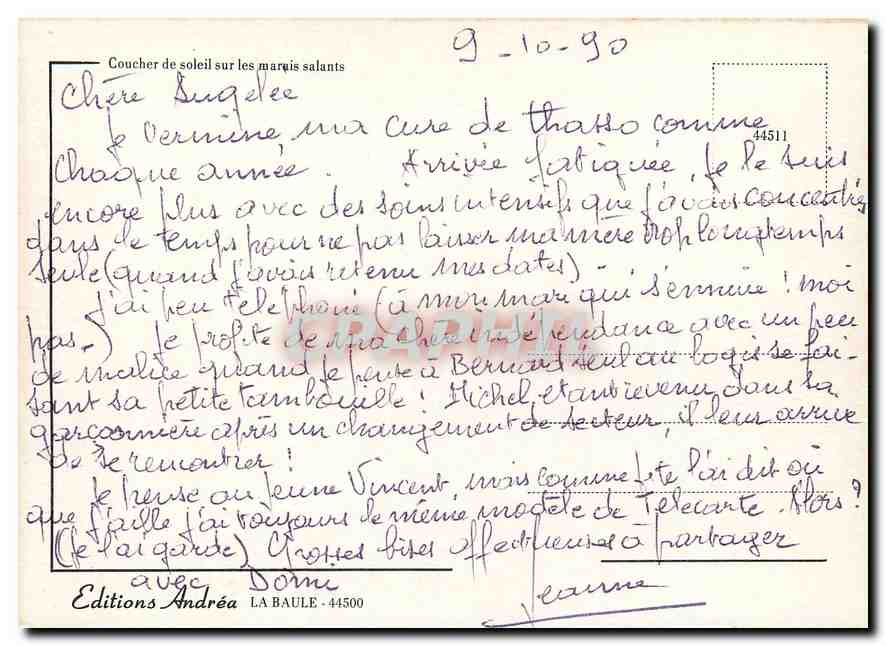 9-10-90
Coucher de soleil sur les marais salants
44511
Chère
je termine ma cure de thalasso comme
chaque année. Arrivée fatiguée, je le suis
encore plus avec des soins intensifs que j'avais concentrés
dans le temps pour ne pas laisser ma mère trop longtemps
seule (quand j'avais retenu mes dates) -
J'ai peu téléphoné (à mon mari qui s'ennuie ! moi
pas -) je profite de ma chère indépendance avec un peu
de malice quand je pense à Bernard seul au logis se fai-
sant sa petite tambouille ! Michel, étant revenu dans sa
garçonnière après un changement de secteur, il leur arrive
de se rencontrer !
Je pense au jeune Vincent, mais comme je te l'ai dit où
que j'aille j'ai toujours le même modèle de Télécarte. Alors ?
(Je l'ai gardé) Grosses bises affectueuses à partager
avec
Jeanne
Editions Andréa LA BAULE - 44500